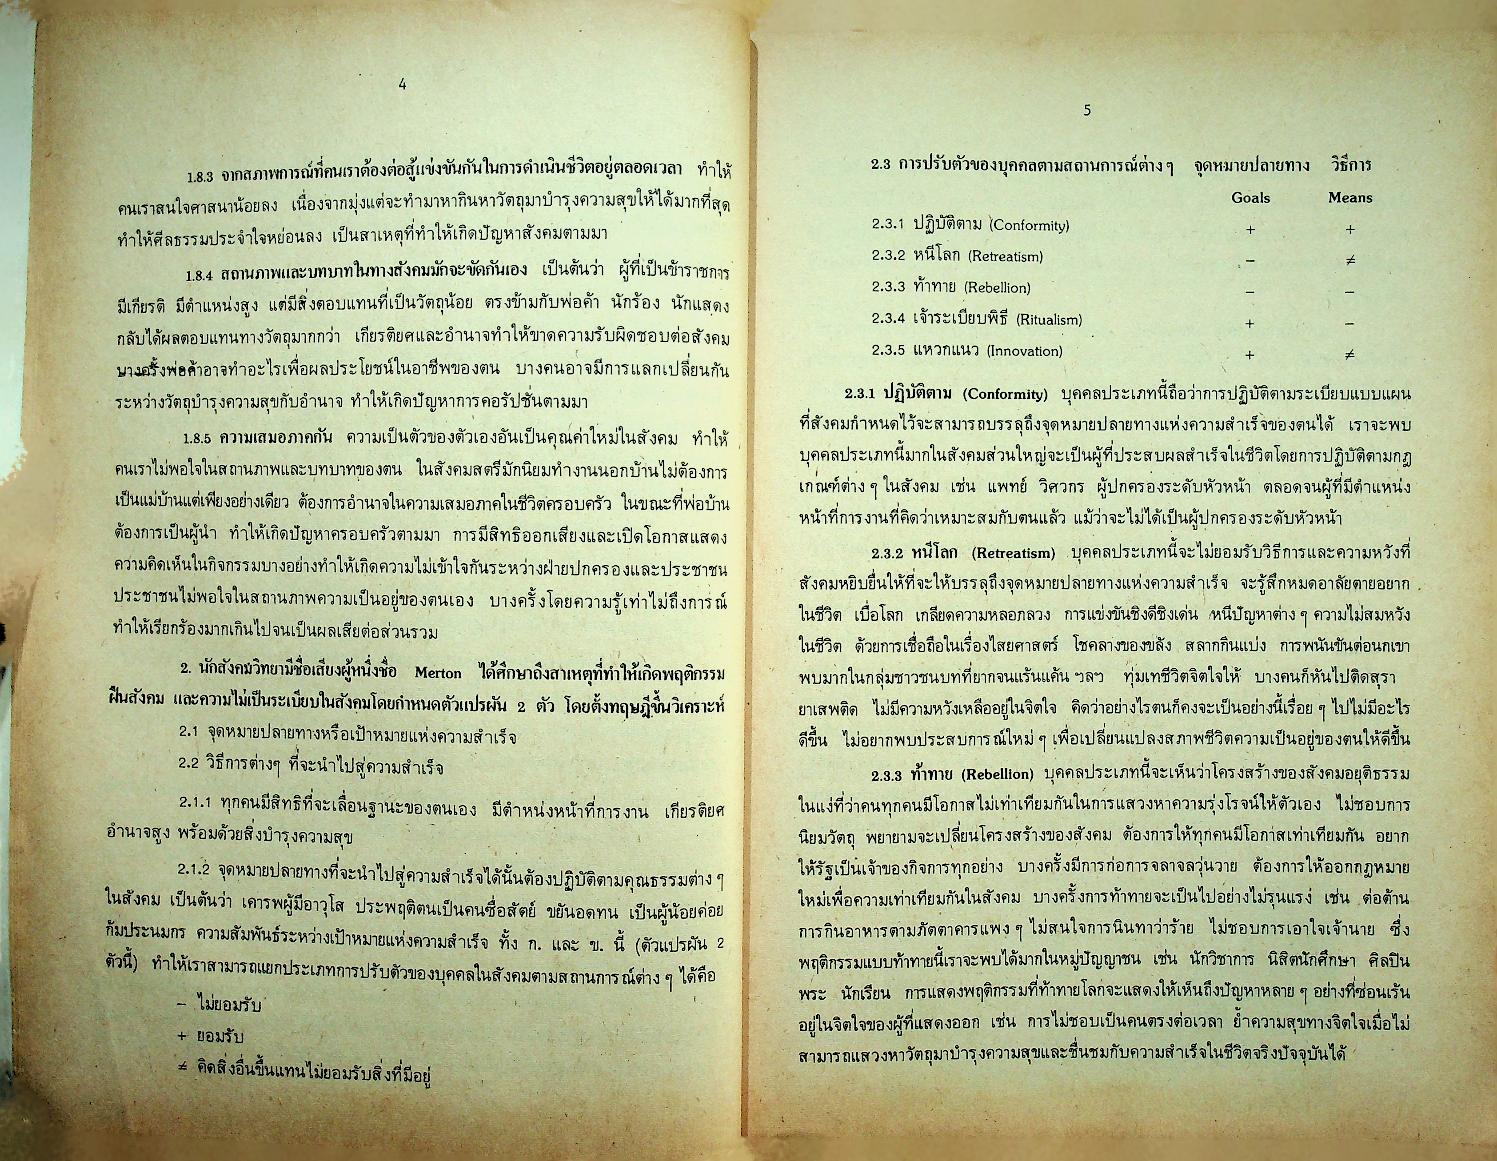 4
1.8.3 จากสภาพการณ์ที่คนเราต้องต่อสู้แข่งขันกันในการดำเนินชีวิตอยู่ตลอดเวลา ทำให้
คนเราสนใจศาสนาน้อยลง เนื่องจากมุ่งแต่จะทำมาหากินหาวัตถุมาบำรุงความสุขให้ได้มากที่สุด
ทำให้ศีลธรรมประจำใจหย่อนลง เป็นสาเหตุที่ทำให้เกิดปัญหาสังคมตามมา
1.8.4 สถานภาพและบทบาทในทางสังคมมักจะขัดกันเอง เป็นต้นว่า ผู้ที่เป็นข้าราชการ
มีเกียรติ มีตำแหน่งสูง แต่มีสิ่งตอบแทนที่เป็นวัตถุน้อย ตรงข้ามกับพ่อค้า นักร้อง นักแสดง
กลับได้ผลตอบแทนทางวัตถุมากกว่า เกียรติยศและอำนาจทำให้ขาดความรับผิดชอบต่อสังคม
บางครั้งพ่อค้าอาจทำอะไรเพื่อผลประโยชน์ในอาชีพของตน บางคนอาจมีการแลกเปลี่ยนกัน
ระหว่างวัตถุบำรุงความสุขกับอำนาจ ทำให้เกิดปัญหาการคอรัปชั่นตามมา
1.8.5 ความเสมอภาคกัน ความเป็นตัวของตัวเองอันเป็นคุณค่าใหม่ในสังคม ทำให้
คนเราไม่พอใจในสถานภาพและบทบาทของตน ในสังคมสตรีมักนิยมทำงานนอกบ้านไม่ต้องการ
เป็นแม่บ้านแต่เพียงอย่างเดียว ต้องการอำนาจในความเสมอภาคในชีวิตครอบครัว ในขณะที่พ่อบ้าน
ต้องการเป็นผู้นำ ทำให้เกิดปัญหาครอบครัวตามมา การมีสิทธิออกเสียงและเปิดโอกาสแสดง
ความคิดเห็นในกิจกรรมบางอย่างทำให้เกิดความไม่เข้าใจกันระหว่างฝ่ายปกครองและประชาชน
ประชาชนไม่พอใจในสถานภาพความเป็นอยู่ของตนเอง บางครั้งโดยความรู้เท่าไม่ถึงการณ์
ทำให้เรียกร้องมากเกินไปจนเป็นผลเสียต่อส่วนรวม
2. นักสังคมวิทยามีชื่อเสียงผู้หนึ่งชื่อ Merton ได้ศึกษาถึงสาเหตุที่ทำให้เกิดพฤติกรรม
ฝืนสังคม และความไม่เป็นระเบียบในสังคมโดยกำหนดตัวแปรผัน 2 ตัว โดยตั้งทฤษฎีขึ้นวิเคราะห์
2.1 จุดหมายปลายทางหรือเป้าหมายแห่งความสำเร็จ
2.2 วิธีการต่างๆ ที่จะนำไปสู่ความสำเร็จ
2.1.1 ทุกคนมีสิทธิที่จะเลื่อนฐานะของตนเอง มีตำหน่งหน้าที่การงาน เกียรติยศ
อำนาจสูง พร้อมด้วยสิ่งบำรุงความสุข
2.1.2 จุดหมายปลายทางที่จะนำไปสู่ความสำเร็จได้นั้นต้องปฏิบัติตามคุณธรรมต่าง ๆ
ในสังคม เป็นต้นว่า เคารพผู้มีอาวุโส ประพฤติตนเป็นคนซื่อสัตย์ ขยันอดทน เป็นผู้น้อยค่อย
ก้มประนมกร ความสัมพันธ์ระหว่างเป้าหมายแห่งความสำเร็จ ทั้ง ก. และ ข. นี้ (ตัวแปรผัน 2
ตัวนี้) ทำให้เราสามารถแยกประเภทการปรับตัวของบุคคลในสังคมตามสถานการณ์ต่าง ๆ ได้คือ
– ไม่ยอมรับ
+ ยอมรับ
≠ คิดสิ่งอื่นขึ้นแทนไม่ยอมรับสิ่งที่มีอยู่
5
2.3 การปรับตัวของบุคคลตามสถานการณ์ต่าง ๆ จุดหมายปลายทาง วิธีการ
Goals Means
2.3.1 ปฏิบัติตาม (Conformity) + +
2.3.2 หนีโลก (Retreatism) – ≠
2.3.3 ท้าทาย (Rebellion) – –
2.3.4 เจ้าระเบียบพิธี (Ritualism) + –
2.3.5 แหวกแนว (Innovation) + ≠
2.3.1 ปฏิบัติตาม (Conformity) บุคคลประเภทนี้ถือว่าการปฏิบัติตามระเบียบแบบแผน
ที่สังคมกำหนดไว้จะสามารถบรรลุถึงจุดหมายปลายทางแห่งความสำเร็จของตนได้ เราจะพบ
บุคคลประเภทนี้มากในสังคมส่วนใหญ่จะเป็นผู้ที่ประสบผลสำเร็จในชีวิตโดยการปฏิบัติตามกฎ
เกณฑ์ต่าง ๆ ในสังคม เช่น แพทย์ วิศวกร ผู้ปกครองระดับหัวหน้า ตลอดจนผู้ที่มีตำแหน่ง
หน้าที่การงานที่คิดว่าเหมาะสมกับตนแล้ว แม้ว่าจะไม่ได้เป็นผู้ปกครองระดับหัวหน้า
2.3.2 หนีโลก (Retreatism) บุคคลประเภทนี้จะไม่ยอมรับวิธีการและความหวังที่
สังคมหยิบยื่นให้ที่จะให้บรรลุถึงจุดหมายปลายทางแห่งความสำเร็จ จะรู้สึกหมดอาลัยตายอยาก
ในชีวิต เบื่อโลก เกลียดความหลอกลวง การแข่งขันชิงดีชิงเด่น หนีปัญหาต่าง ๆ ความไม่สมหวัง
ในชีวิต ด้วยการเชื่อถือในเรื่องไสยศาสตร์ โชคลางของขลัง สลากกินแบ่ง การพนันขันต่อนกเขา
พบมากในกลุ่มชาวชนบทที่ยากจนแร้นแค้น ฯลฯ ทุ่มเทชีวิตจิตใจให้ บางคนก็หันไปติดสุรา
ยาเสพติด ไม่มีความหวังเหลืออยู่ในจิตใจ คิดว่าอย่างไรตนก็คงจะเป็นอย่างนี้เรื่อย ๆ ไปไม่มีอะไร
ดีขึ้น ไม่อยากพบประสบการณ์ใหม่ ๆ เพื่อเปลี่ยนแปลงสภาพชีวิตความเป็นอยู่ของตนให้ดีขึ้น
2.3.3 ท้าทาย (Rebellion) บุคคลประเภทนี้จะเห็นว่าโครงสร้างของสังคมอยุติธรรม
ในแง่ที่ว่าคนทุกคนมีโอกาสไม่เท่าเทียมกันในการแสวงหาความรุ่งโรจน์ให้ตัวเอง ไม่ชอบการ
นิยมวัตถุ พยายามจะเปลี่ยนโครงสร้างของสังคม ต้องการให้ทุกคนมีโอกาสเท่าเทียมกัน อยาก
ให้รัฐเป็นเจ้าของกิจการทุกอย่าง บางครั้งมีการก่อการจลาจลวุ่นวาย ต้องการให้ออกกฎหมาย
ใหม่เพื่อความเท่าเทียมกันในสังคม บางครั้งการท้าทายจะเป็นไปอย่างไม่รุนแรง เช่น ต่อต้าน
การกินอาหารตามภัตตาคารแพง ๆ ไม่สนใจการนินทาว่าร้าย ไม่ชอบการเอาใจเจ้านาย ซึ่ง
พฤติกรรมแบบท้าทายนี้เราจะพบได้มากในหมู่ปัญญาชน เช่น นักวิชาการ นิสิตนักศึกษา ศิลปิน
พระ นักเรียน การแสดงพฤติกรรมที่ท้าทายโลกจะแสดงให้เห็นถึงปัญหาหลาย ๆ อย่างที่ซ่อนเร้น
อยู่ในจิตใจของผู้ที่แสดงออก เช่น การไม่ชอบเป็นคนตรงต่อเวลา ย้ำความสุขทางจิตใจเมื่อไม่
สามารถแสวงหาวัตถุมาบำรุงความสุขและชื่นชมกับความสำเร็จในชีวิตจริงปัจจุบันได้